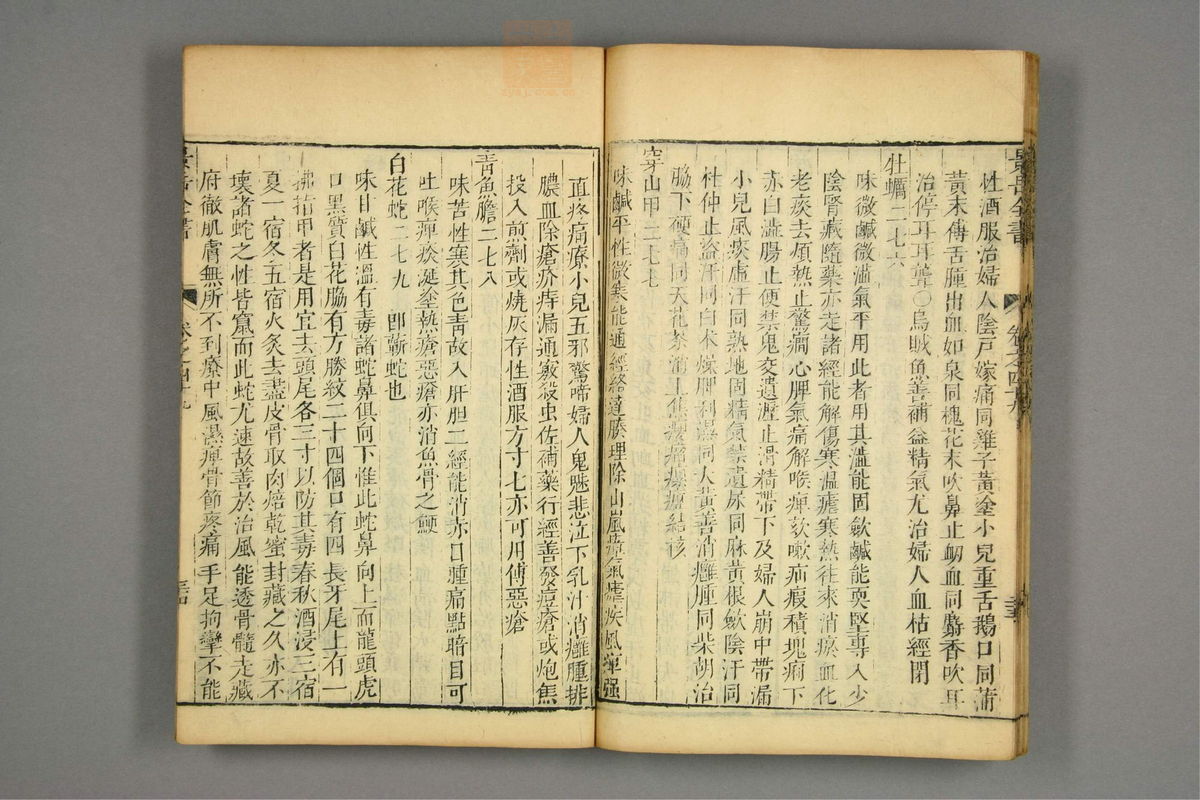 景岳全書
卷之四十九
性酒服治婦人陰戸嫁痛同雞子黃塗小兒重舌鵝口同蒲
黃末傅舌腫出血如泉同槐花末吹鼻止衂血同麝香吹耳
治停耳耳聾〇烏賊魚善補益精氣尤治婦人血枯經閉
牡蠣二七六
味微鹹微澁氣平用此者用其澁能固歛鹹能耎堅專入少
陰腎藏隨藥亦走諸經能解傷寒溫瘧寒熱往來消瘀血化
老痰去煩熱止驚癇心脾氣痛解喉痺欬嗽疝瘕積塊痢下
赤白澁腸止便禁鬼交遺瀝止滑精帶下及婦人崩中帶漏
小兒風痰虛汗同熟地固精氣禁遺尿同麻黃根歛陰汗同
杜仲止盜汗同白术燥脾利濕同大黃善消癰腫同柴胡治
脇下硬痛同天花茶消上焦癭瘤瘰癧結核
穿山甲二七七
味鹹平性微寒能通經絡達腠理除山嵐瘴氣瘧疾風痺强
直疼痛療小兒五邪驚啼婦人鬼魅悲泣下乳汁消癰腫排
膿血除瘡疥痔漏通竅殺虫佐補藥行經善發痘瘡或炮焦
投入煎劑或燒灰存性酒服方寸七亦可用傅惡瘡
靑魚膽二七八
味苦性寒其色靑故入肝胆二經能消赤目腫痛點暗目可
吐喉痺痰涎塗熱瘡惡瘡亦消魚骨之鯁
白花蛇二七九 卽蘄蛇也
味甘鹹性溫有毒諸蛇鼻俱向下惟此蛇鼻向上而龍頭虎
口黑質白花脇有方勝紋二十四個口有四長牙尾上有一
拂指甲者是用宜去頭尾各三寸以防其毒春秋酒浸三宿
夏一宿冬五宿火炙去盡皮骨取肉焙乾蜜封藏之久亦不
壞諸蛇之性皆竄而此蛇尤速故善於治風能透骨髓走藏
府徹肌膚無所不到療中風濕痺骨節疼痛手足拘攣不能
景岳全書
卷之四十九